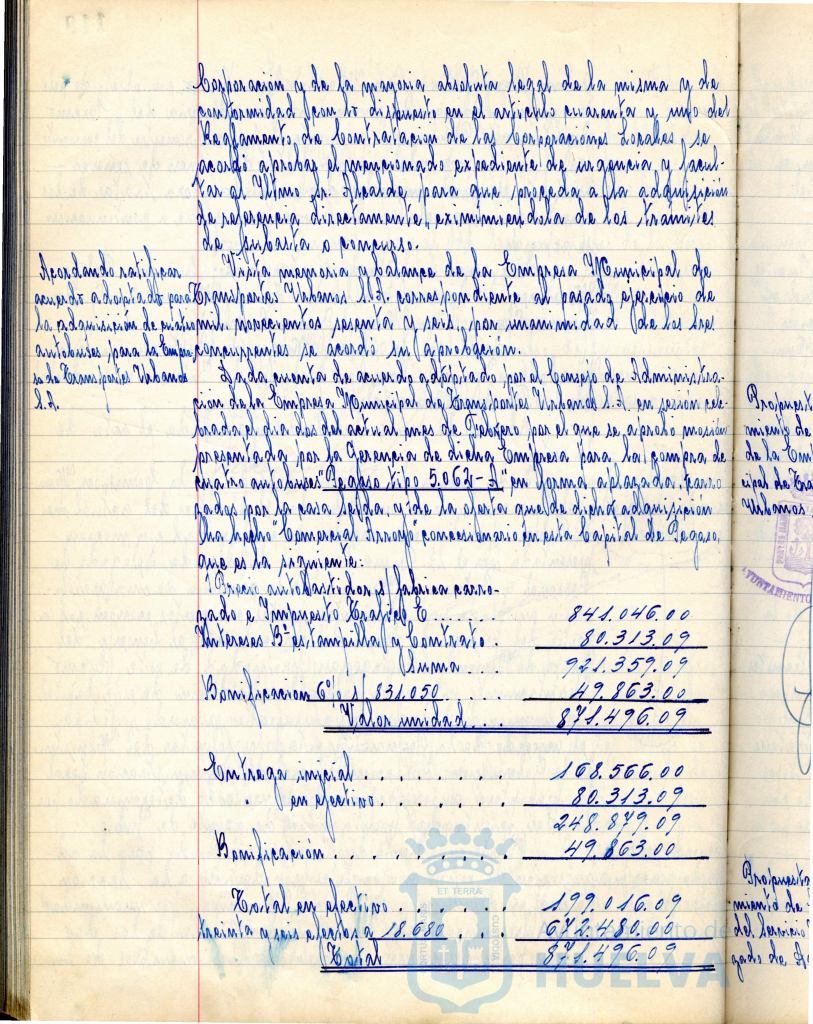 Corporación y de la mayoria absoluta legal de la misma y de
conformidad con lo dispuesto en el articulo cuarenta y uno del
Reglamento de Contratación de las Corporaciones Locales se
acordó aprobar el mencionado expediente de urgencia y facul-
tar al Iltmo. Sr. Alcalde para que proceda a la adquisición
de referencia directamente, eximiendola de los tramites
de subasta o concurso.
Acordando ratificar
acuerdo adoptado para
la adquisición de cuatro
autobuses para la Empre-
sa de Transportes Urbanos
S.A.
Vista memoria y balance de la Empresa Municipal de
Transportes Urbanos S.A. correspondiente al pasado ejercicio de
mil novecientos sesenta y seis, por unanimidad de los tres
concurrentes se acordó su aprobación.
Dada cuenta de acuerdo adoptado por el Consejo de Administra-
ción de la Empresa Municipal de Transportes Urbanos S.A. en sesión cele-
brada el dia dos del actual mes de Febrero por el que se aprobó moción
presentada por la Gerencia de dicha Empresa para la compra de
cuatro autobuses "Pegaso, tipo 5.062-A" en forma aplazada, carro-
zados por la casa Seida, y de la oferta que de dicha adquisición
ha hecho "Comercial Arroyo" concesionario en esta Capital de Pegaso,
que es la siguiente:
Precio autobastidor s/ fabrica carro-
zado e Impuesto Trafico E ...... 841.046.00
Intereses Bª estampilla y Contrato . 80.313.09
Suma ... 921.359.09
Bonificación 6% s/ 831.050 .... 49.863.00
Valor unidad ... 871.496.09
Entrega inicial ......... 168.566.00
" en efectivo ......... 80.313.09
248.879.09
Bonificación ......... 49.863.00
Total en efectivo ...... 199.016.09
treinta y seis efectos a 18.680 ... 672.480.00
Total 871.496.09
Propuest
miento de
de la Em
cipal de Tra
Urbanos
AYUNTAMIENTO
Propuesta
miento de
del Servicio
zado de
ET TERRA
Ayuntamiento de
HUELVA